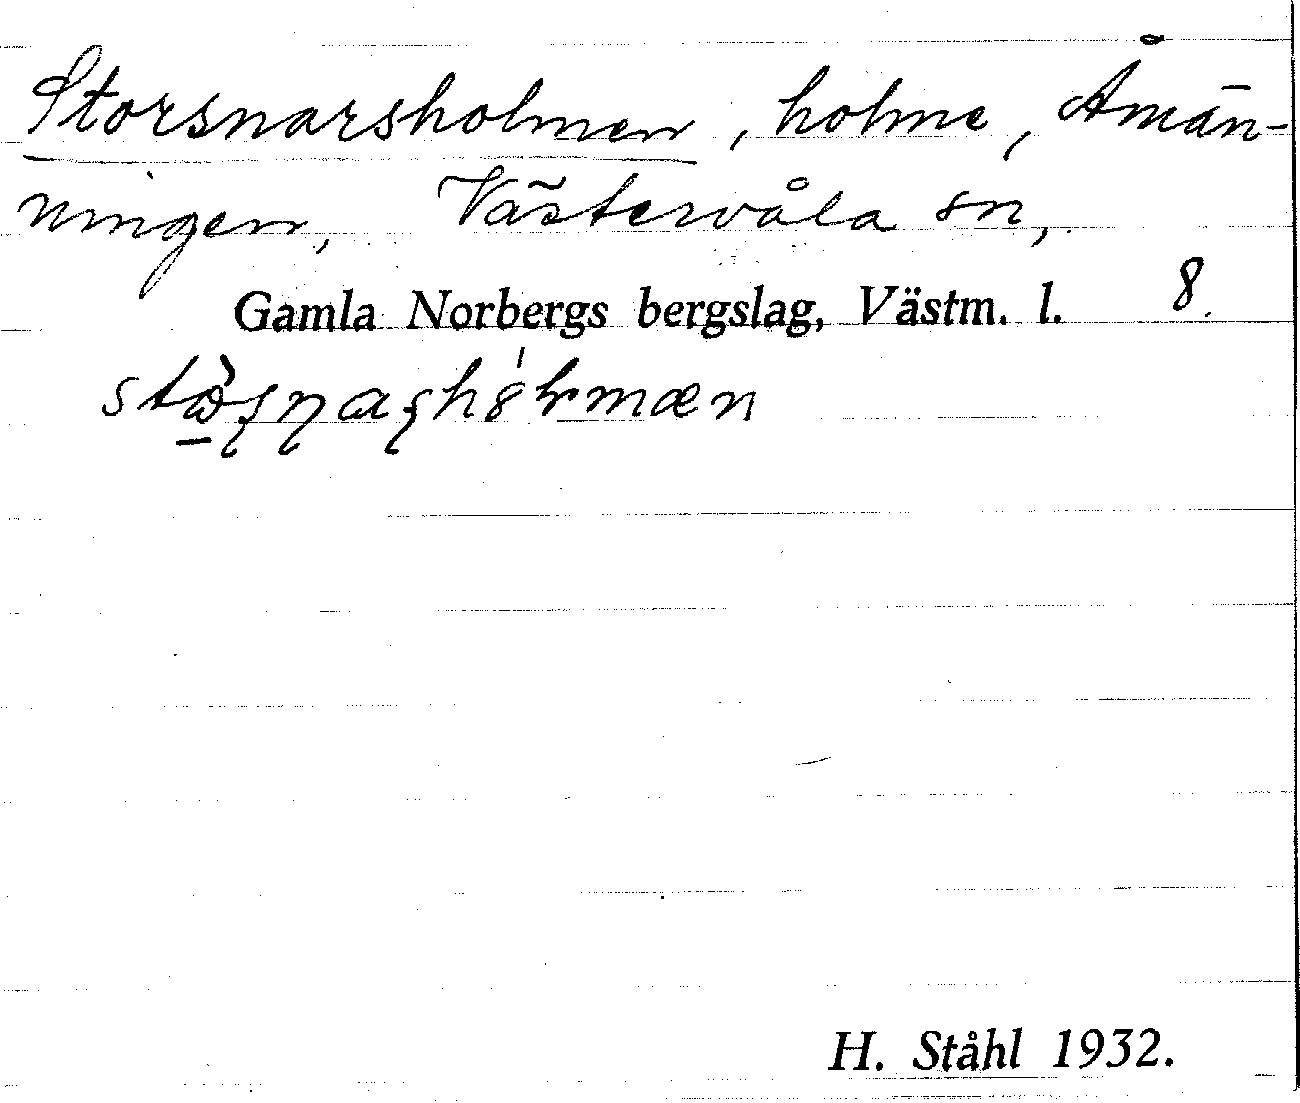 Storsnarsholmen, holme, Åmän-
ningen, Västervåla sn,
Gamla Norbergs bergslag, Västm. l. 8.
H. Ståhl 1932.